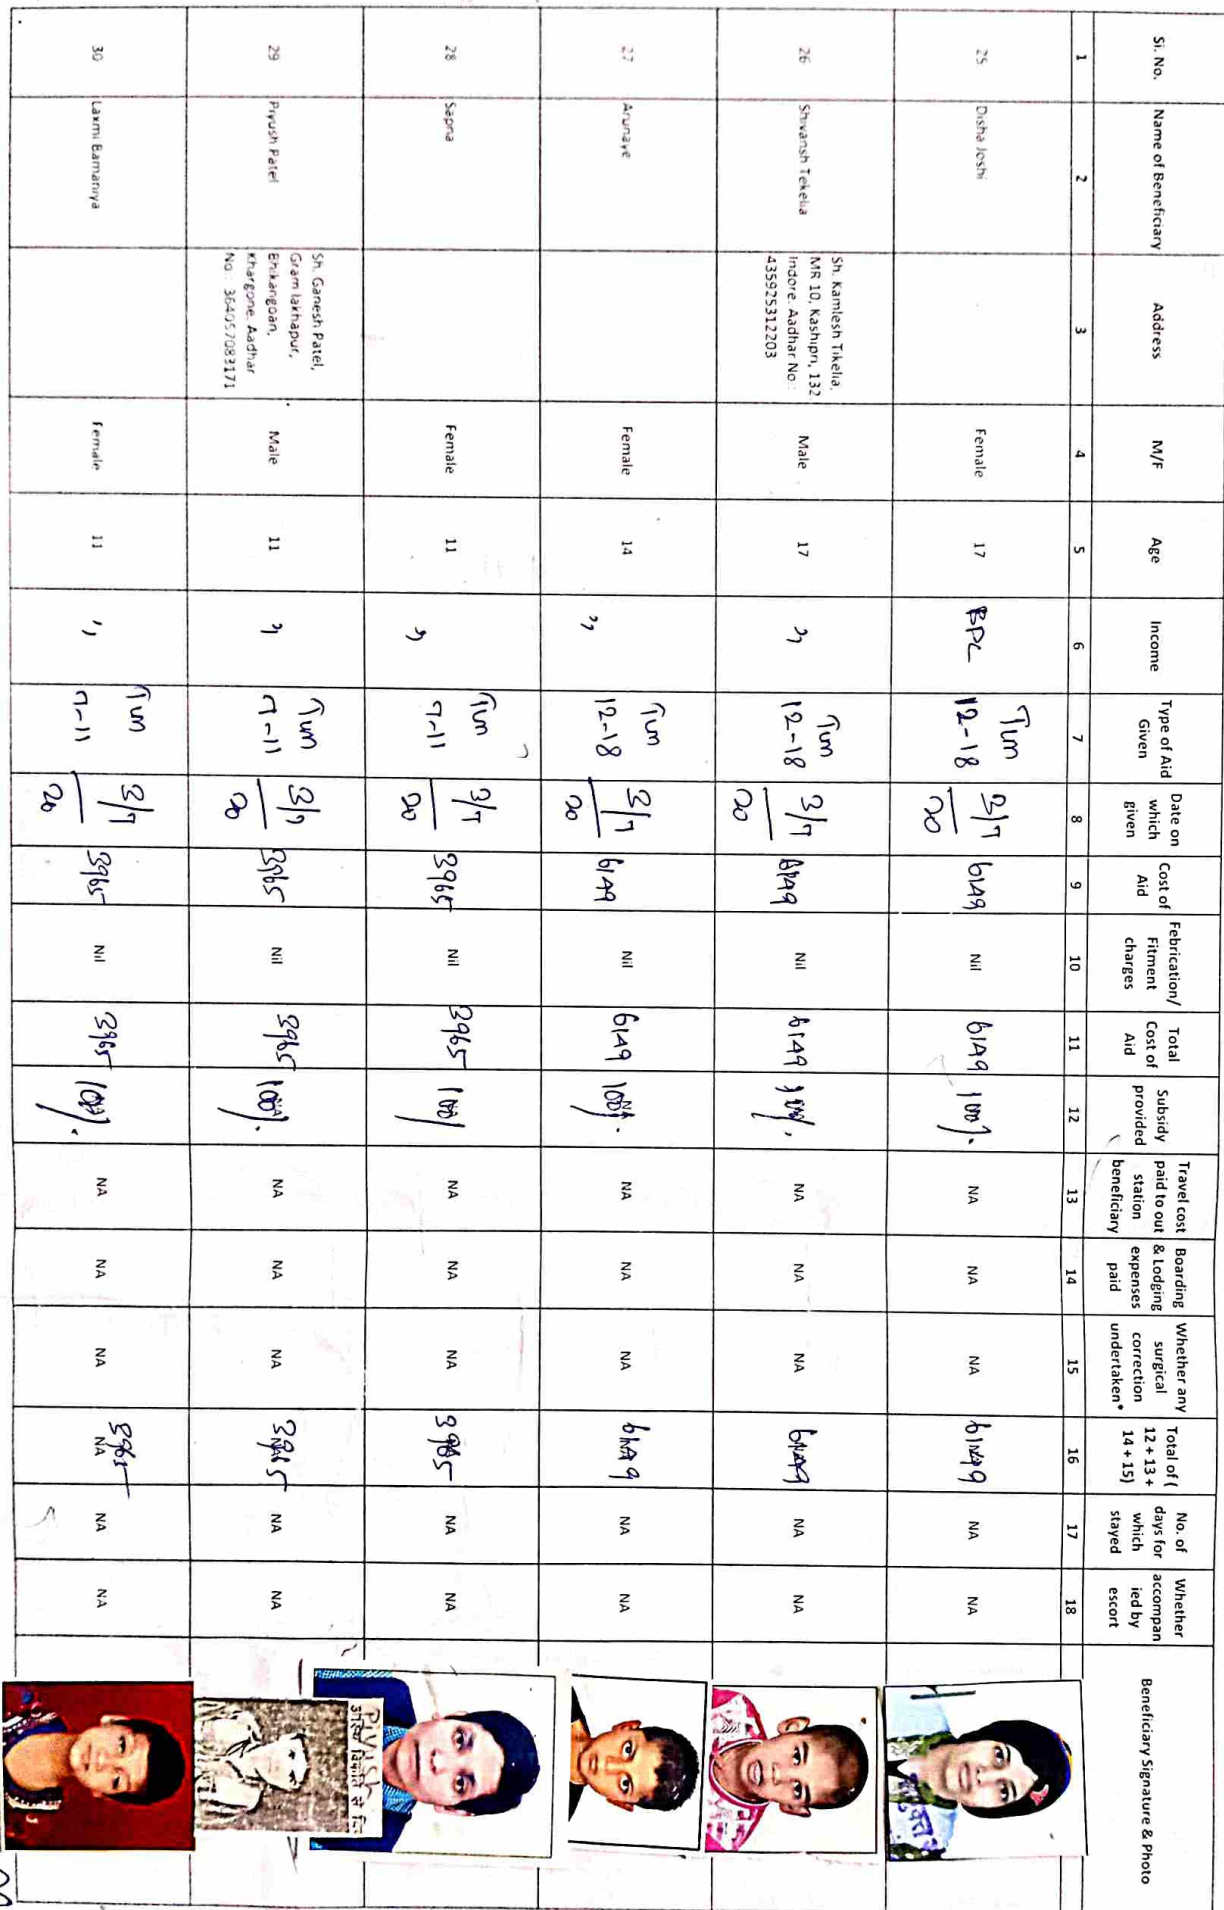 Si. No. Name of Beneficiary Address M/F Age Income Type of Aid Given Date on which given Cost of Aid Febrication/ Fitment charges Total Cost of Aid Subsidy provided Travel cost paid to out station beneficiary Boarding & Lodging expenses paid Whether any surgical correction undertaken* Total of ( 12 + 13 + 14 + 15) No. of days for which stayed Whether accompan ied by escort Beneficiary Signature & Photo
1 2 3 4 5 6 7 8 9 10 11 12 13 14 15 16 17 18
25 Disha Joshi Female 17 BPL Tlm 12-18 3/7 20 6149 Nil 6149 100%. NA NA NA 6149 NA NA
26 Shivansh Tekelia Sh. Kamlesh Tikelia, MR 10, Kashipri, 132 Indore. Aadhar No.: 435925312203 Male 17 " Tlm 12-18 3/7 20 6149 Nil 6149 100%. NA NA NA 6149 NA NA
27 Arunaye Female 14 " Tlm 12-18 3/7 20 6149 Nil 6149 100%. NA NA NA 6149 NA NA
28 Sapna Female 11 " Tlm 7-11 3/7 20 3965 Nil 3965 100% NA NA NA 3965 NA NA
29 Piyush Patel Sh. Ganesh Patel, Gram lakhapur, Bhikangoan, Khargone. Aadhar No.: 364057083171 Male 11 " Tlm 7-11 3/7 20 3965 Nil 3965 100%. NA NA NA 3965 NA NA
PIYUSH P
30 Laxmi Bamaniya Female 11 " Tlm 7-11 3/7 20 3965 Nil 3965 100%. NA NA NA 3965 NA NA NA